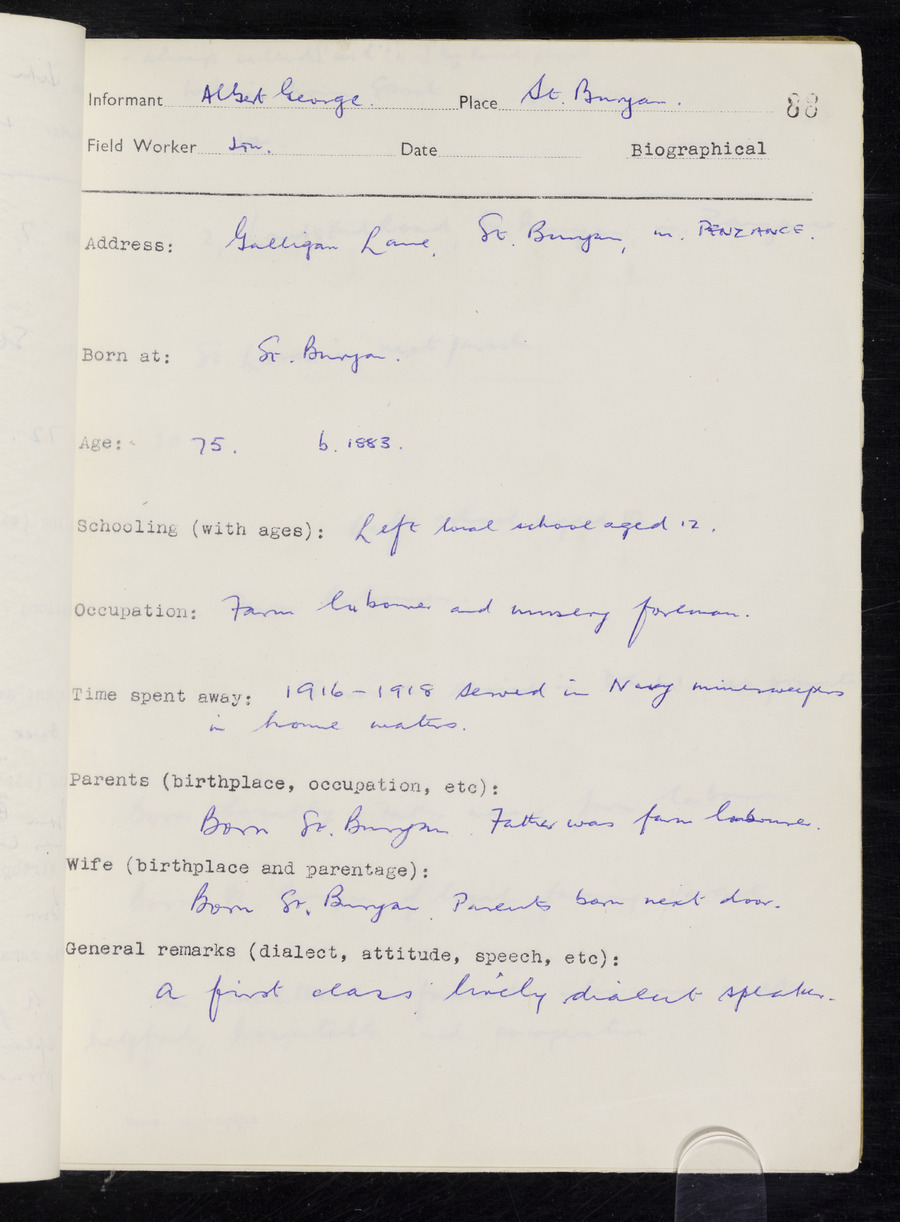 Informant Albert George. Place St. Buryan. 88
Field Worker Date Biographical
Address: Galligan Lane, St. Buryan, nr. PENZANCE.
Born at: St. Buryan.
Age: 75. b. 1883.
Schooling (with ages): Left local school aged 12.
Occupation: Farm labourer and nursery foreman.
Time spent away: 1916-1918 served in Navy minesweepers
in home waters.
Parents (birthplace, occupation, etc):
Born St. Buryan. Father was farm labourer.
Wife (birthplace and parentage):
Born St. Buryan. Parents born next door.
General remarks (dialect, attitude, speech, etc):
A first class, lively dialect speaker.